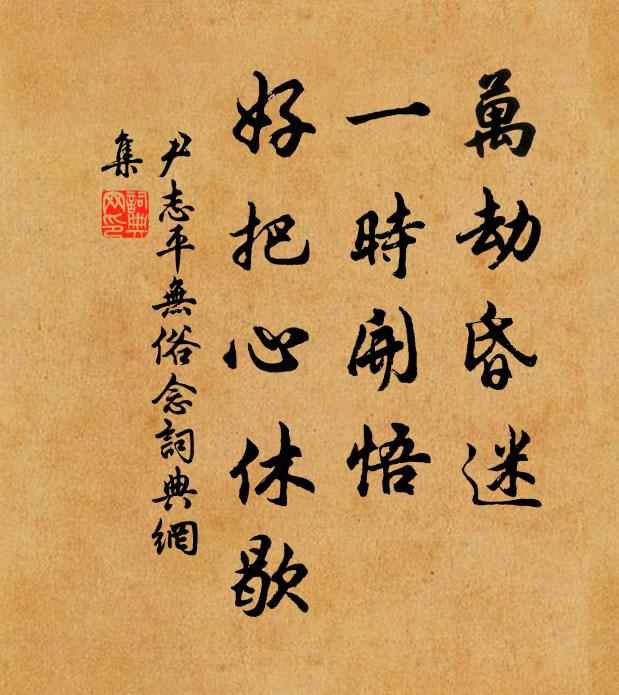 萬劫昏迷
一時開悟
好把心休歇
尹志平無俗念詞典網
集
詞典網印